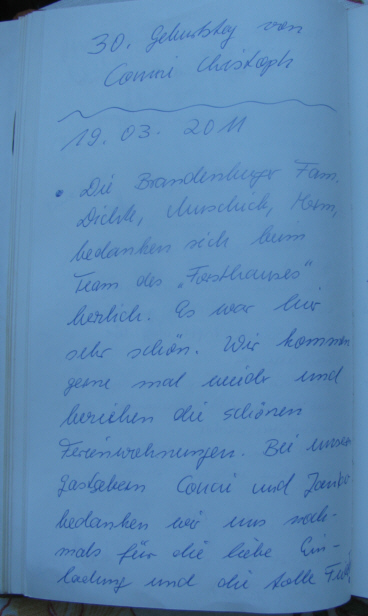 30. Geburtstag von
Conni Christoph
19. 03. 2011
• Die Brandenburger Fam.
Dickte,
bedanken sich beim
Team des „Forsthauses"
herlich. Es war hir
sehr schön. Wir kommen
gerne mal wieder und
beziehen die schönen
Ferienwohnungen. Bei unser
Gastgebern Conni und
bedanken wir uns noch-
mals für die liebe Ein-
ladung und die tolle